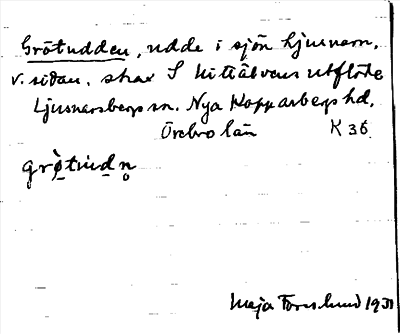 Grötudden, udde i sjön Ljusnern,
v. sidan, strax S Hitälvens utflöde
Ljusnarsbergs sn. Nya Kopparbergs hd.
Örebro län K 36.
Maja Forslund 19